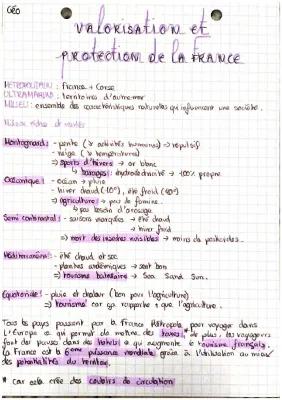 Géo
VALORISATION et
PROTECTION DE LA FRANCE
METROPOLITAIN : France + Corse
ULTRAMARIN : territoires d'outre-mer
MILIEU : ensemble des caractéristiques naturelles qui influencent une société.
Milieux riches et variés
Montagnards : - pente (↘ activités humaines) → répulsif
- neige (↘ températures)
⇒ sports d'hivers → or blanc
↳ barrages : hydroélectricité → 100% propre
Océanique : - océan → pluie
- hiver chaud (10°), été froid (20°)
⇒ agriculture : → pas de famine
↳ pas besoin d'arosage
Semi continental : - saisons marquées → été chaud
→ hiver froid
⇒ mort des insectes nuisibles → moins de pesticides.
Méditerranéen : - été chaud et sec
- plantes → sent bon
⇒ tourisme balnéaire → Sea. Sand. Sun.
Equatoriale : - pluie et chaleur (bon pour l'agriculture)
⇒ tourisme car ça rapporte + que l'agriculture.
Tous les pays passent par la France pour voyager dans
l'Europe ce qui permet de mettre des taxes * de plus, les voyageurs
font des pauses dans des hotels ce qui augmente le tourisme français.
La France est la 6ème puissance mondiale grâce à l'utilisation au mieux
des potentialités du territoire.
* car cela crée des couloirs de circulation